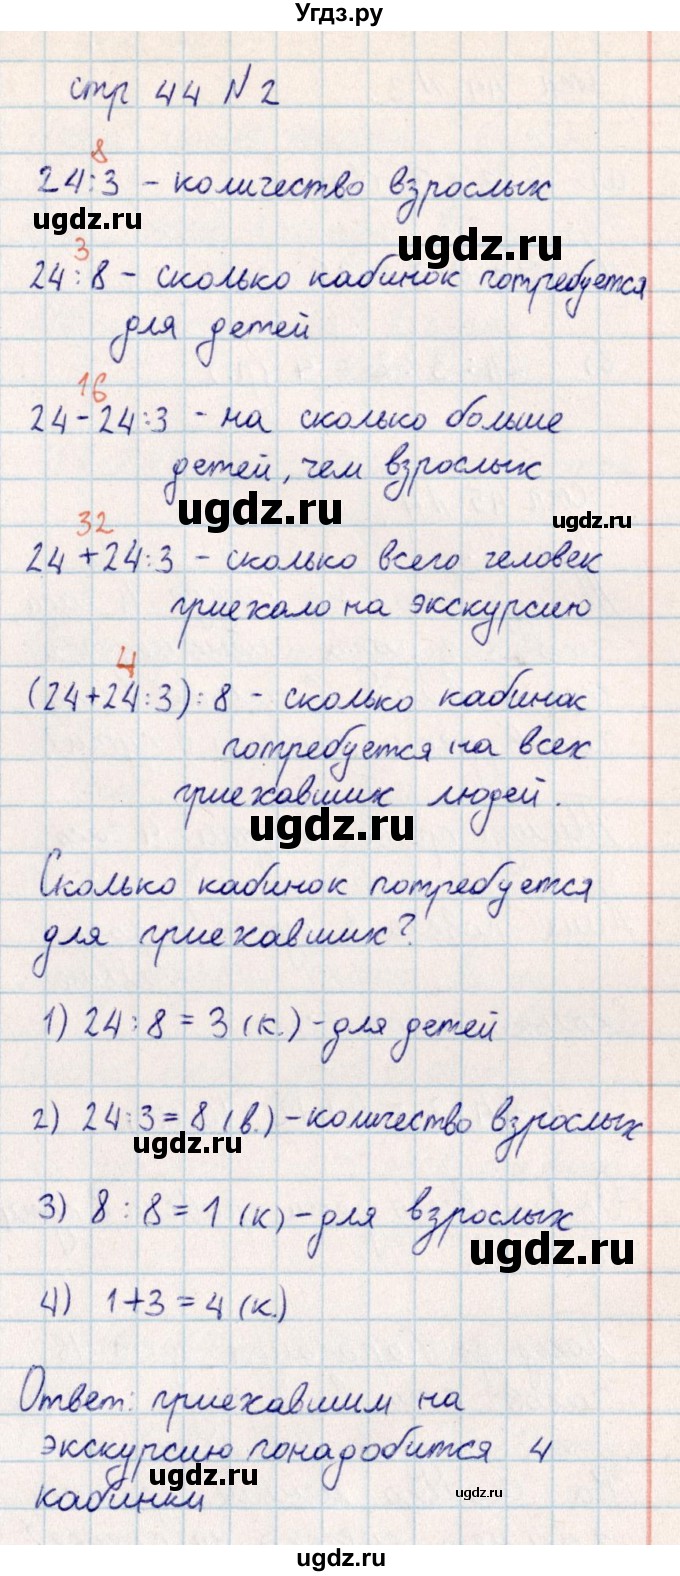 Угдз.ру
стр 44 N2
8
24:3 - количество взрослых
ugdz.ru
ugdz.ru
3
24:8 - сколько кабинок потребуется
для детей
16
24-24:3 - на сколько больше
детей, чем взрослых
ugdz.ru
ugdz.ru
32
24+24:3 - сколько всего человек
приехало на экскурсию
4
(24+24:3):8 - сколько кабинок
потребуется на всех
приехавших людей.
ugdz.ru
Сколько кабинок потребуется
для приехавших?
1) 24:8=3 (к.) - для детей
2) 24:3=8 (в.) - количество взрослых
ugdz.ru
3) 8:8=1 (к) - для взрослых
ugdz.ru
4) 1+3=4 (к.)
Ответ: приехавшим на
экскурсию понадобится 4
ugdz.ru
ugdz.ru
кабинки
ugdz.ru